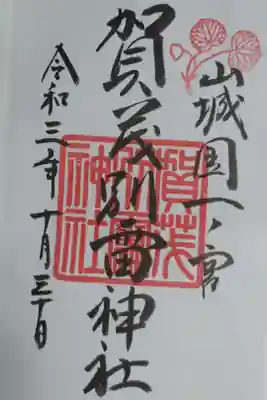 山城国一ノ宮
賀茂別雷神社
賀茂別雷神社
令和三年十月三十日